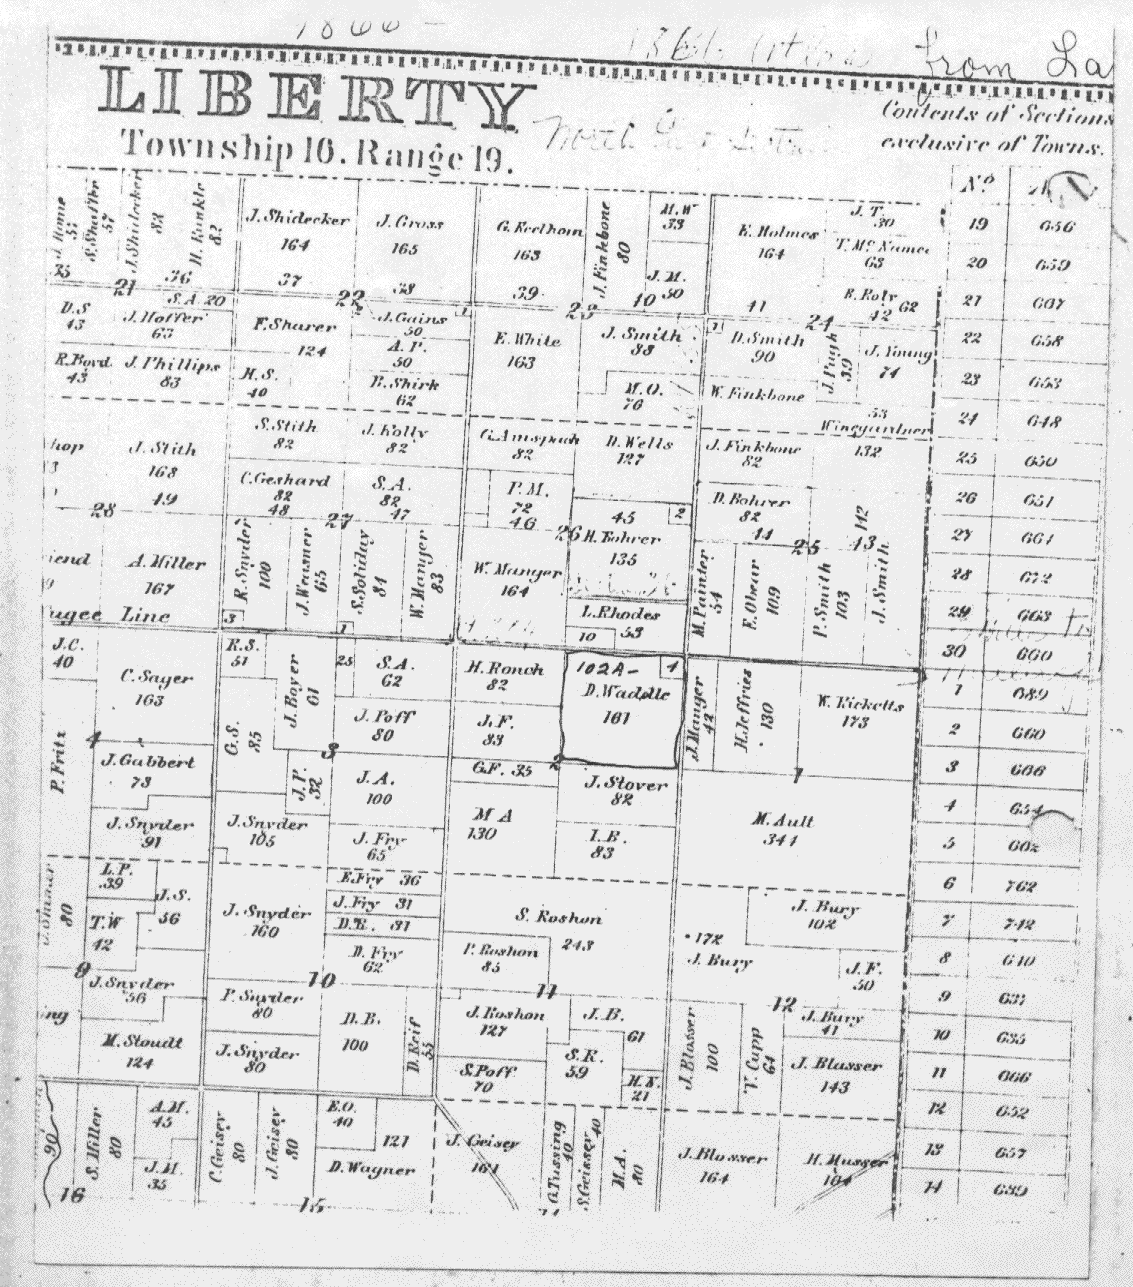 1866 -
from La
LIBERTY
Township 16. Range 19.
Contents of Sections
exclusive of Towns.
Nº
19 656
20 659
21 667
22 658
23 653
24 648
25 650
26 651
27 661
28 672
29 663
30 660
1 689
2 660
3 666
4 654
5 602
6 762
7 742
8 640
9 631
10 635
11 666
12 652
13 657
14 689
S. Shaffer
57
J. Shidecker
83
H. Runkle
82
J. Shidecker
164
37
J. Gross
165
38
163
39
J. Finkbone
80
M.W
33
J. M.
50
40
E. Holmes
164
41
J. T.
30
63
62
42
35
36
21
22
23
24
D.S
43
S.A. 20
J. Hoffer
63
R. Boyd
43
J. Phillips
83
F. Sharer
124
H.S.
40
J. Gains
50
A. P.
50
R. Shirk
62
E. White
163
J. Smith
88
M.O.
76
D. Smith
90
W. Finkbone
J. Pugh
39
J. Young
74
53
Winegardner
132
J. Stith
168
49
28
S. Stith
82
C. Geshard
82
48
J. Kelly
82
S. A.
82
47
27
G. Amspach
82
P. M.
72
46
D. Wells
127
45
2
26
J. Finkbone
82
D. Bohrer
82
44
25
142
43
A. Miller
167
Line
R. Snyder
100
3
J. Weasner
65
S. Soliday
84
1
W. Manger
83
W. Manger
164
H. Bohrer
135
L. Rhodes
10 53
M. Painter
54
109
P. Smith
103
J. Smith
J. C.
40
C. Sager
163
P. Fritz
4
J. Gabbert
73
J. Snyder
91
R. S.
51
G. S.
85
J. Boyer
61
J. P.
32
3
J. Snyder
105
25
S. A.
62
J. Poff
80
J. A.
100
J. Fry
65
H. Ronch
82
J. F.
83
G.F. 35
2
M A
130
102A-
4
D. Waddle
161
J. Stover
82
I. B.
83
J. Manger
42
H. Jeffries
130
W. Ricketts
173
1
M. Ault
344
80
L. P.
39
J. S.
56
T. W
42
9
J. Snyder
56
M. Stoudt
124
J. Snyder
160
E. Fry 36
J. Fry 31
D. R. 31
D. Fry
62
10
P. Snyder
80
J. Snyder
80
D. B.
100
D. Reif
55
S. Roshon
243
P. Roshon
85
11
J. Roshon
127
S. Poff
70
J. B.
61
S. R.
59
H. K.
21
172
J. Bury
J. Bury
102
J. F.
50
12
J. Blosser
100
V. Cupp
64
J. Bury
41
J. Blusser
143
90
16
S. Miller
80
A. M.
45
J. M.
35
C. Geiser
80
J. Geiser
80
E. O.
40
121
D. Wagner
15
J. Geiser
161
G. Tussing
40
S. Geisser
40
M. A.
80
J. Blosser
164
H. Musser
104